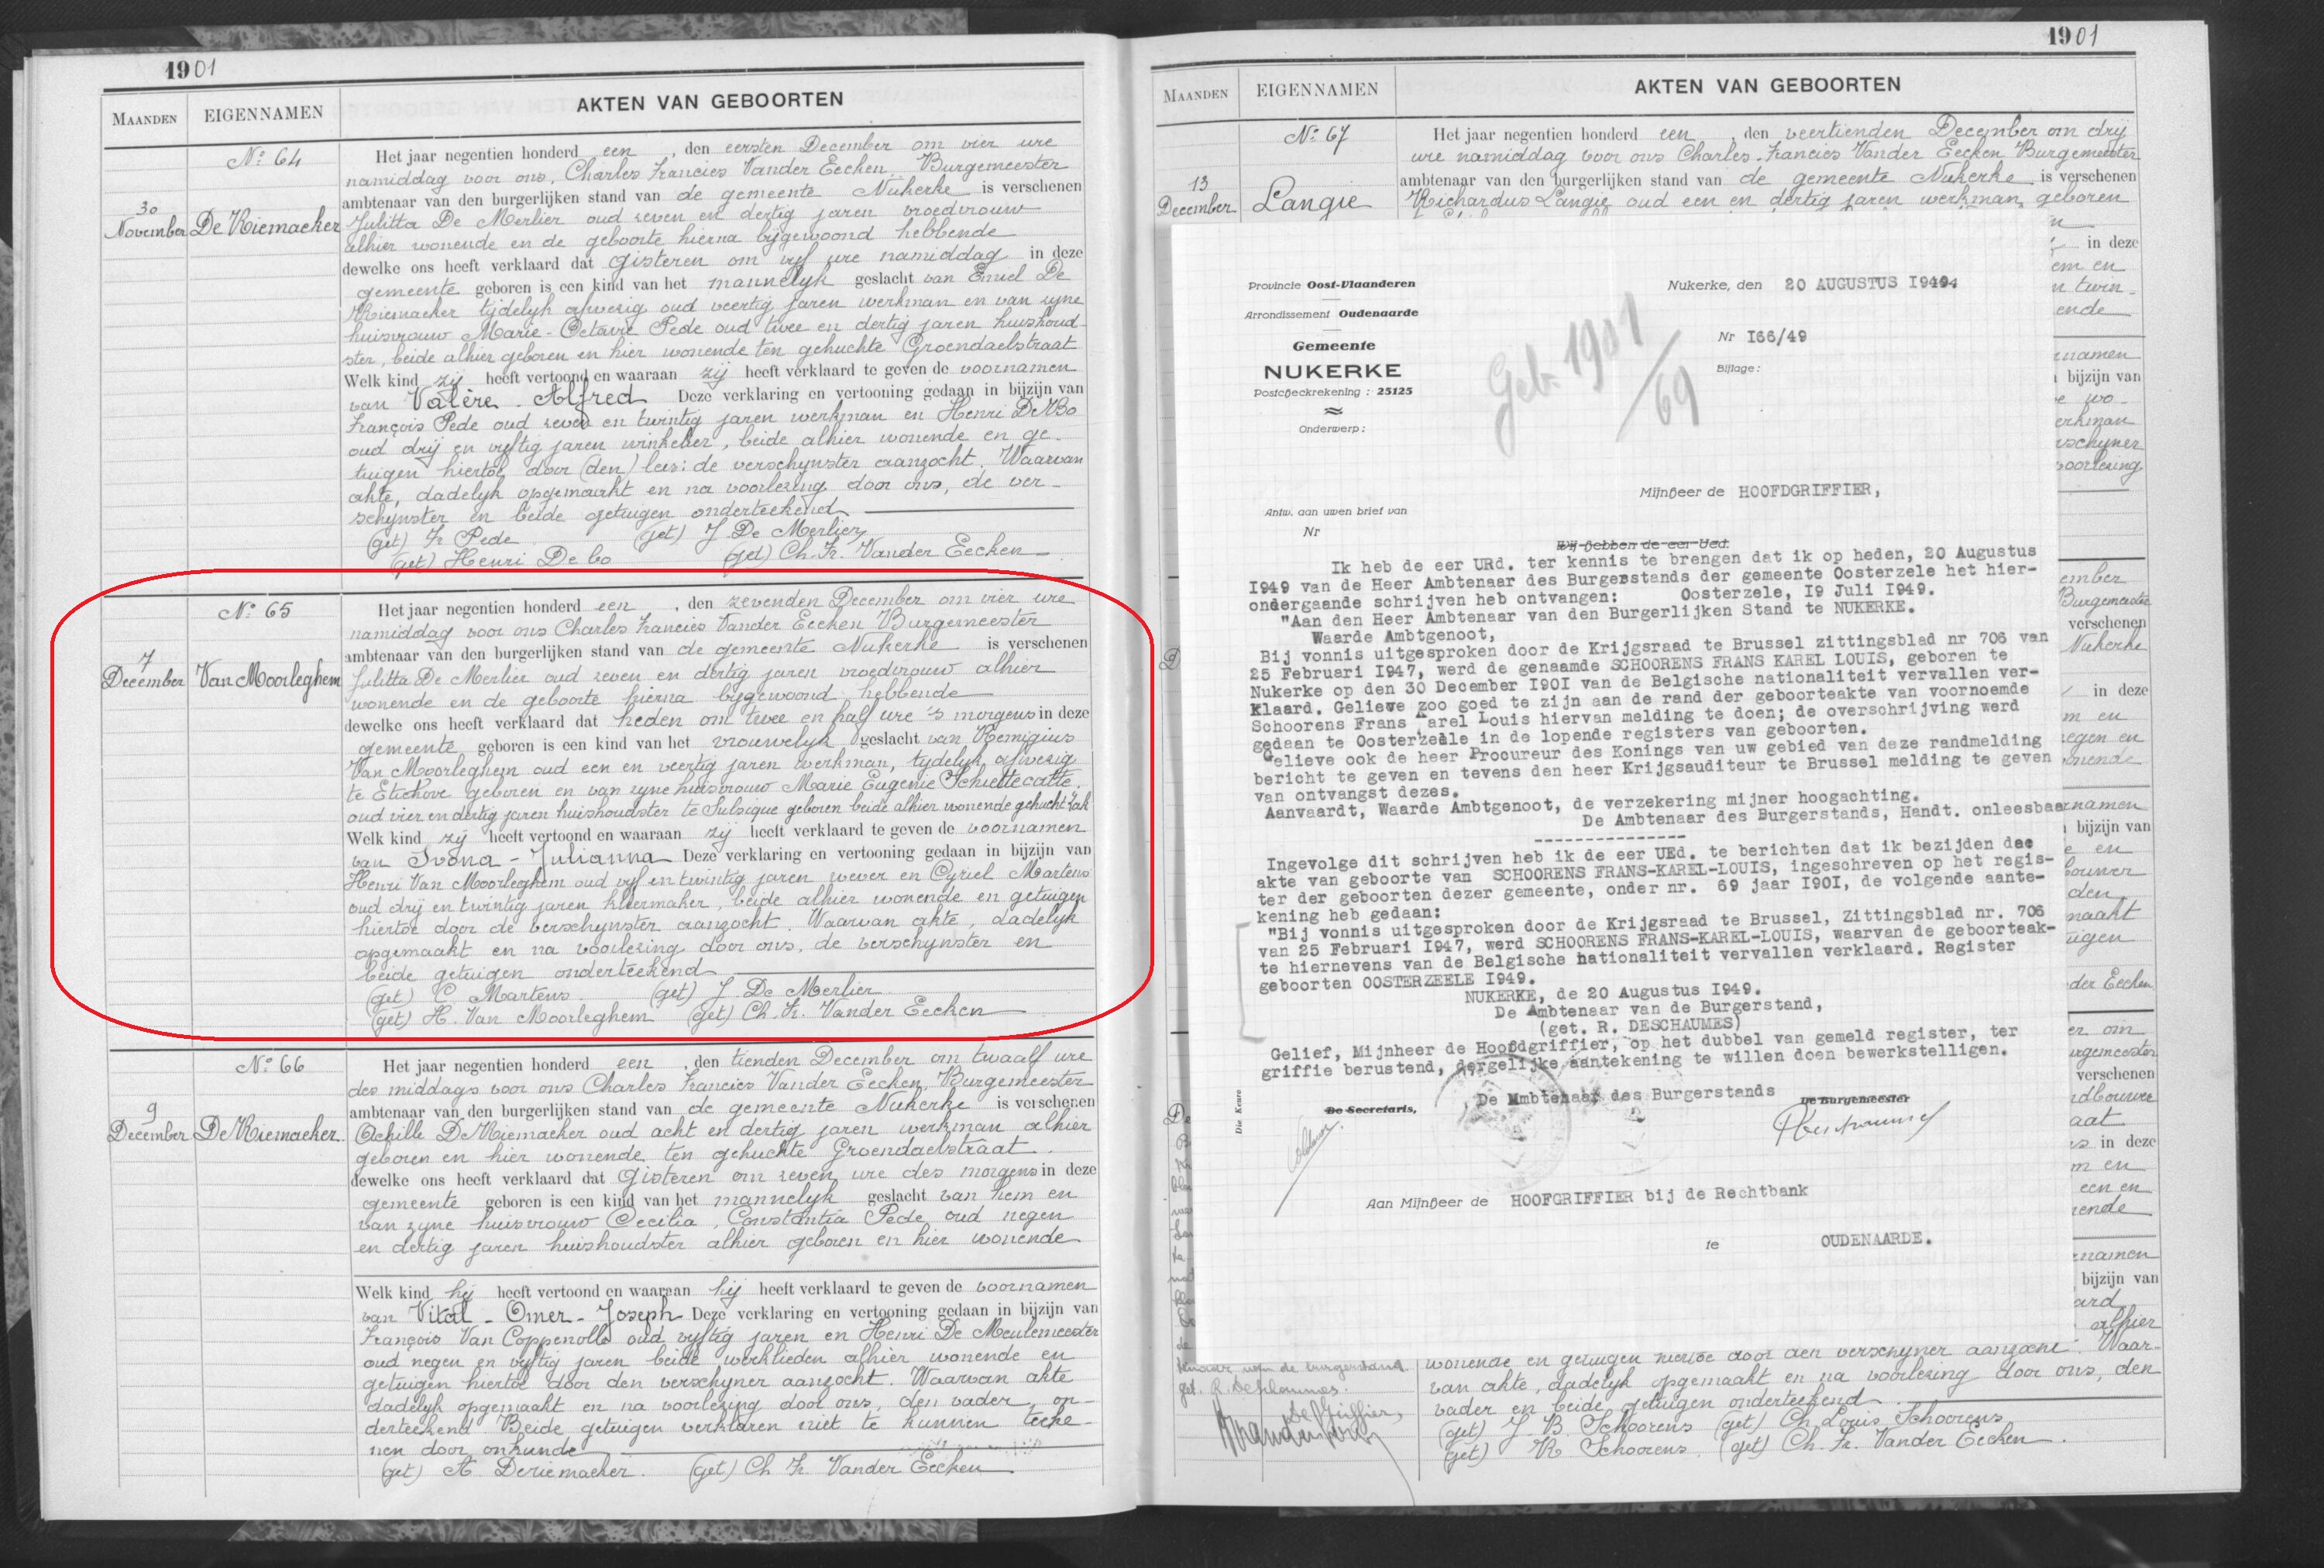 1901
MAANDEN EIGENNAMEN AKTEN VAN GEBOORTEN
No: 64
30 November
De Riemaeker
Het jaar negentien honderd een, den eersten December om vier ure
namiddag voor ons, Charles Francies Vander Eecken, Burgemeester
ambtenaar van den burgerlijken stand van de gemeente Nukerke is verschenen
Julitta De Merlier oud zeven en dertig jaren vroedvrouw
alhier wonende en de geboorte hierna bijgewoond hebbende
dewelke ons heeft verklaard dat gisteren om vijf ure namiddag in deze
gemeente geboren is een kind van het mannelyk geslacht van Emiel De
Riemaeker tijdelyk afwezig oud veertig jaren werkman en van zyne
huisvrouw Marie-Octavie Pede oud twee en dertig jaren huishoud-
ster, beide alhier geboren en hier wonende ten gehuchte Groendaelstraat
Welk kind zij heeft vertoond en waaraan zij heeft verklaard te geven de voornamen
van Valère-Alfred Deze verklaring en vertooning gedaan in bijzijn van
François Pede oud zeven en twintig jaren werkman en Henri De Bo
oud drij en vyftig jaren winkelier, beide alhier wonende en ge-
tuigen hiertoe door (den) lees: de verschynster aanzocht. Waarvan
akte, dadelyk opgemaakt en na voorlezing door ons, de ver-
schynster en beide getuigen onderteekend
(get) Fr Pede (get) J De Merlier
(get) Henri De bo (get) Ch. Fr. Vander Eecken
No: 65
7 December
Van Moorleghem
Het jaar negentien honderd een, den zevenden December om vier ure
namiddag voor ons Charles Francies Vander Eecken Burgemeester
ambtenaar van den burgerlijken stand van de gemeente Nukerke is verschenen
Julitta De Merlier oud zeven en dertig jaren vroedvrouw alhier
wonende en de geboorte hierna bygewoond hebbende
dewelke ons heeft verklaard dat heden om twee en half ure 's morgens in deze
gemeente geboren is een kind van het vrouwelyk geslacht van Remigius
Van Moorleghem oud een en veertig jaren werkman, tydelyk afwezig
te Etichove geboren en van zyne huisvrouw Marie Eugenie Schiettecatte
oud vier en dertig jaren huishoudster te Sulsique geboren beide alhier wonende gehucht
Welk kind zij heeft vertoond en waaraan zij heeft verklaard te geven de voornamen
van Ivona-Julianna Deze verklaring en vertooning gedaan in bijzijn van
Henri Van Moorleghem oud vyf en twintig jaren wever en Cyriel Martens
oud drij en twintig jaren kleermaker, beide alhier wonende en getuigen
hiertoe door de verschynster aanzocht. Waarvan akte, dadelyk
opgemaakt en na voorlezing door ons, de verschynster en
beide getuigen onderteekend
(get) C Martens (get) J. De Merlier
(get) H. Van Moorleghem (get) Ch. Fr. Vander Eecken
No: 66
9 December
De Riemaeker
Het jaar negentien honderd een, den tienden December om twaalf ure
des middags voor ons Charles Francies Vander Eecken, Burgemeester
ambtenaar van den burgerlijken stand van de gemeente Nukerke is verschenen
Achille De Riemaeker oud acht en dertig jaren werkman alhier
geboren en hier wonende ten gehuchte Groendaelstraat
dewelke ons heeft verklaard dat gisteren om zeven ure des morgens in deze
gemeente geboren is een kind van het mannelyk geslacht van hem en
van zyne huisvrouw Cecilia, Constantia Pede oud negen
en dertig jaren huishoudster alhier geboren en hier wonende
Welk kind hij heeft vertoond en waaraan hij heeft verklaard te geven de voornamen
van Vital-Omer-Joseph Deze verklaring en vertooning gedaan in bijzijn van
François Van Coppenolle oud vyftig jaren en Henri De Meulemeester
oud negen en vyftig jaren beide werklieden alhier wonende en
getuigen hiertoe door den verschyner aanzocht. Waarvan akte
dadelyk opgemaakt en na voorlezing door ons, den vader, on-
derteekend. Beide getuigen verklaren niet te kunnen teeke-
nen door onkunde
(get) A Deriemaeker. (get) Ch Fr Vander Eecken
1901
MAANDEN EIGENNAMEN AKTEN VAN GEBOORTEN
No: 67
13 December
Langie
Het jaar negentien honderd een, den veertienden December om drij
ure namiddag voor ons Charles-Francies Vander Eecken Burgemeester
ambtenaar van den burgerlijken stand van de gemeente Nukerke is verschenen
Richardus Langie oud een en dertig jaren werkman, geboren
Provincie Oost-Vlaanderen
Arrondissement Oudenaarde
Gemeente
NUKERKE
Postcheckrekening : 25125
Onderwerp :
Nukerke, den 20 AUGUSTUS 1949.
Nr 166/49
Bijlage :
Geb. 1901/69
Mijnheer de HOOFDGRIFFIER,
Antw. aan uwen brief van
Nr
Wij hebben de eer Ued.
Ik heb de eer URd. ter kennis te brengen dat ik op heden, 20 Augustus
I949 van de Heer Ambtenaar des Burgerstands der gemeente Oosterzele het hier-
ondergaande schrijven heb ontvangen: Oosterzele, I9 Juli I949.
"Aan den Heer Ambtenaar van den Burgerlijken Stand te NUKERKE.
Waarde Ambtgenoot,
Bij vonnis uitgesproken door de Krijgsraad te Brussel zittingsblad nr 706 van
25 Februari I947, werd de genaamde SCHOORENS FRANS KAREL LOUIS, geboren te
Nukerke op den 30 December I90I van de Belgische nationaliteit vervallen ver-
klaard. Gelieve zoo goed te zijn aan de rand der geboorteakte van voornoemde
Schoorens Frans Karel Louis hiervan melding te doen; de overschrijving werd
gedaan te Oosterzeele in de lopende registers van geboorten.
Gelieve ook de heer Procureur des Konings van uw gebied van deze randmelding
bericht te geven en tevens den heer Krijgsauditeur te Brussel melding te geven
van ontvangst dezes.
Aanvaardt, Waarde Ambtgenoot, de verzekering mijner hoogachting.
De Ambtenaar des Burgerstands, Handt. onleesbaar
---------------
Ingevolge dit schrijven heb ik de eer UEd. te berichten dat ik bezijden de
akte van geboorte van SCHOORENS FRANS-KAREL-LOUIS, ingeschreven op het regis-
ter der geboorten dezer gemeente, onder nr. 69 jaar I90I, de volgende aante-
kening heb gedaan:
"Bij vonnis uitgesproken door de Krijgsraad te Brussel, Zittingsblad nr. 706
van 25 Februari I947, werd SCHOORENS FRANS-KAREL-LOUIS, waarvan de geboorteak-
te hiernevens van de Belgische nationaliteit vervallen verklaard. Register
geboorten OOSTERZEELE I949.
NUKERKE, de 20 Augustus I949.
De Ambtenaar van de Burgerstand,
(get. R. DESCHAUMES)
Gelief, Mijnheer de Hoofdgriffier, op het dubbel van gemeld register, ter
griffie berustend, dergelijke aantekening te willen doen bewerkstelligen.
De Ambtenaar des Burgerstands
De Secretaris, De Burgemeester
Die Keure
Aan Mijnheer de HOOFGRIFFIER bij de Rechtbank
te OUDENAARDE.
wonende en getuigen hiertoe door den verschyner aanzocht. Waar-
van akte, dadelyk opgemaakt en na voorlezing door ons, den
vader en beide getuigen onderteekend
(get) J. B. Schoorens (get) Ch. Louis Schoorens
(get) R. Schoorens (get) Ch. Fr. Vander Eecken
van de burgerstand
get. R. Deschaumes.
De Griffier,